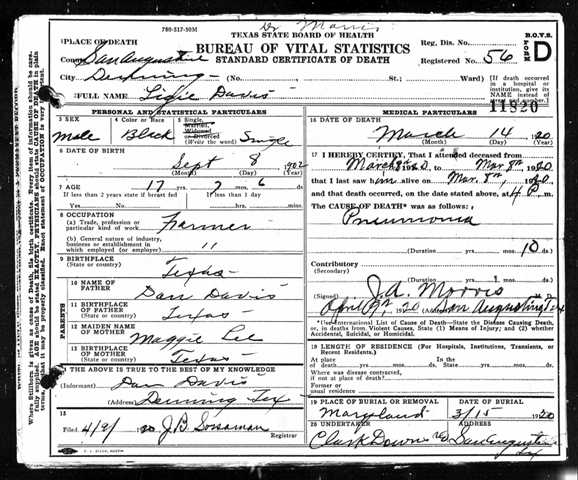 780-517-50M
Dr Morris
TEXAS STATE BOARD OF HEALTH
BUREAU OF VITAL STATISTICS
STANDARD CERTIFICATE OF DEATH
B.O.V.S.
FORM D
Reg. Dis. No.
Registered No. 56
1 PLACE OF DEATH
County San Augustine
City Denning (No. St.; Ward)
If death occurred in a hospital or institution, give its NAME instead of street and number.
2 FULL NAME Davis
11820
PERSONAL AND STATISTICAL PARTICULARS
3 SEX
Male
4 Color or Race
Black
5 Single, Married, Widowed or Divorced
Single
6 DATE OF BIRTH
Sept 8 1902
(Month) (Day) (Year)
7 AGE
17 6
If less than 2 years state if breast fed If less than 1 day
Yrs. Mos. hrs. min.
8 OCCUPATION
(a) Trade, profession or particular kind of work Farmer
(b) General nature of industry, business or establishment in which employed (or employer) "
9 BIRTHPLACE
(State or country) Texas
PARENTS
10 NAME OF FATHER Dan Davis
11 BIRTHPLACE OF FATHER
(State or country) Texas
12 MAIDEN NAME OF MOTHER Maggie Lee
13 BIRTHPLACE OF MOTHER
(State or country) Texas
14 THE ABOVE IS TRUE TO THE BEST OF MY KNOWLEDGE
(Informant) Dan Davis
(Address) Denning Tex
15
Filed 4/9/ 1920 J B Sossaman
Registrar
MEDICAL PARTICULARS
16 DATE OF DEATH
March 14 1920
(Month) (Day) (Year)
17 I HEREBY CERTIFY, That I attended deceased from
March 1920 to Mar 8th 1920
that I last saw him alive on Mar. 8th, 1920
and that death occurred, on the date stated above, at 4 P. m.
The CAUSE OF DEATH* was as follows:
Pneumonia
(Duration) yrs. mos. 10 ds.
Contributory
(Secondary)
(Duration) yrs. mos. ds.
(Signed) J.A. Morris
April 9th, 1920 (Address) San Augustine Tex
*International List of Cause of Death—State the Disease Causing Death, or, in deaths from Violent Causes, State (1) Means of Injury; and (2) whether Accidental, Suicidal, or Homicidal.
18 LENGTH OF RESIDENCE (For Hospitals, Institutions, Transients, or Recent Residents.)
At place of death yrs. mos. ds. In the State yrs. mos. ds.
Where was disease contracted, if not at place of death?
Former or usual residence
19 PLACE OF BURIAL OR REMOVAL
Maryland
DATE OF BURIAL
3/15 1920
20 UNDERTAKER
Clark Downs
ADDRESS
San Augustine
Tex